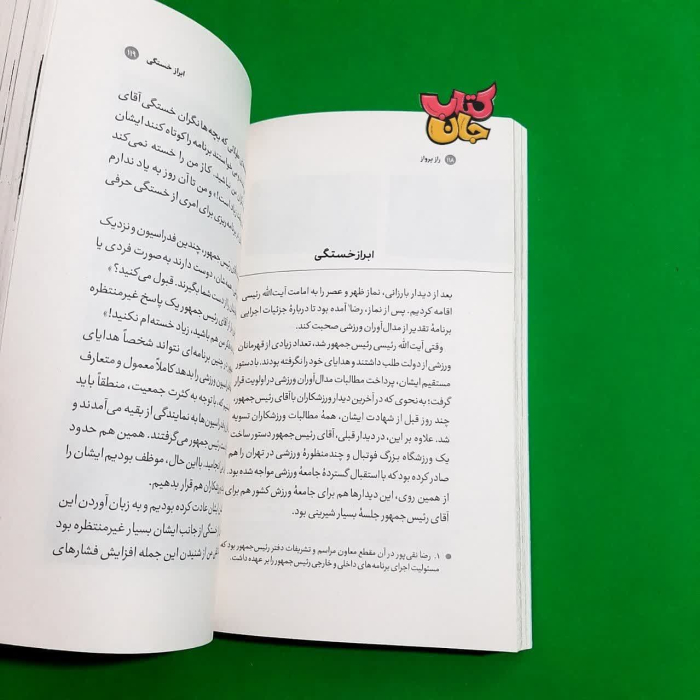 کتاب
جان
۱۱۸ راز پرواز
ابراز خستگی
بعد از دیدار بارزانی، نماز ظهر و عصر را به امامت آیت‌الله رئیسی
اقامه کردیم. پس از نماز، رضا۱ آمده بود تا دربارهٔ جزئیات اجرایی
برنامهٔ تقدیر از مدال‌آوران ورزشی صحبت کند.
وقتی آیت‌الله رئیسی رئیس‌جمهور شد، تعداد زیادی از قهرمانان
ورزشی از دولت طلب داشتند و هدایای خود را نگرفته بودند. با دستور
مستقیم ایشان، پرداخت مطالبات مدال‌آوران ورزشی در اولویت قرار
گرفت؛ به‌نحوی که در آخرین دیدار ورزشکاران با آقای رئیس‌جمهور،
چند روز قبل از شهادت ایشان، همهٔ مطالبات ورزشکاران تسویه
شد. علاوه بر این، در دیدار قبلی، آقای رئیس‌جمهور دستور ساخت
یک ورزشگاه بزرگ فوتبال و چندمنظورهٔ ورزشی در تهران را هم
صادر کرده بود که با استقبال گستردهٔ جامعهٔ ورزشی مواجه شده بود.
از همین روی، این دیدارها هم برای جامعهٔ ورزش کشور هم برای
آقای رئیس‌جمهور جلسهٔ بسیار شیرینی بود.
۱. رضا نقی‌پور در آن مقطع معاون مراسم و تشریفات دفتر رئیس‌جمهور بود که
مسئولیت اجرای برنامه‌های داخلی و خارجی رئیس‌جمهور را بر عهده داشت.
ابراز خستگی ۱۱۹
که بچه‌ها نگران خستگی آقای
خواستند برنامه را کوتاه کنند ایشان
نباشید. کار من را خسته نمی‌کند
است!» و من تا آن روز به یاد ندارم
برنامه‌ریزی برای امری از خستگی حرفی
رئیس‌جمهور، چندین فدراسیون و نزدیک
دوست دارند به صورت فردی یا
از دست شما بگیرند. قبول می‌کنید؟»
آقای رئیس‌جمهور یک پاسخ غیرمنتظره
هم باشید، زیاد خسته‌ام نکنید!»
در چنین برنامه‌ای نتواند شخصاً هدایای
ورزشی را بدهد کاملاً معمول و متعارف
با توجه به کثرت جمعیت، منطقاً باید
به نمایندگی از بقیه می‌آمدند و
رئیس‌جمهور می‌گرفتند. همین هم حدود
با این حال، موظف بودیم ایشان را
هم قرار بدهیم.
ایشان عادت کرده بودیم و به زبان آوردن این
خستگی از جانب ایشان بسیار غیرمنتظره بود
من از شنیدن این جمله افزایش فشارهای